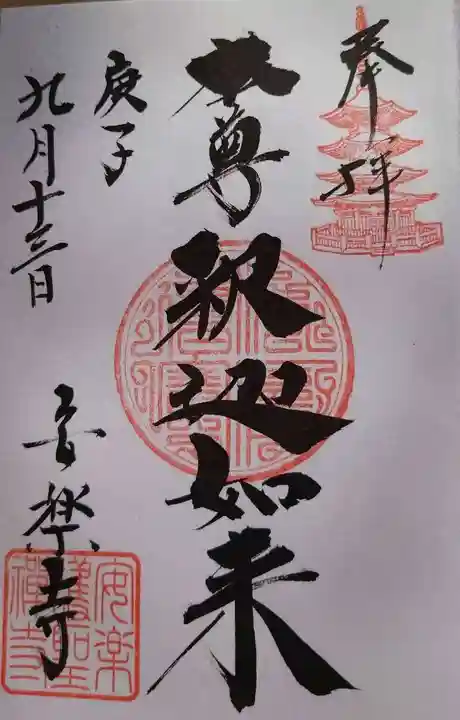 奉拝
本尊
釈迦如来
庚子
九月十三日
安楽寺
安楽
護聖
禅寺